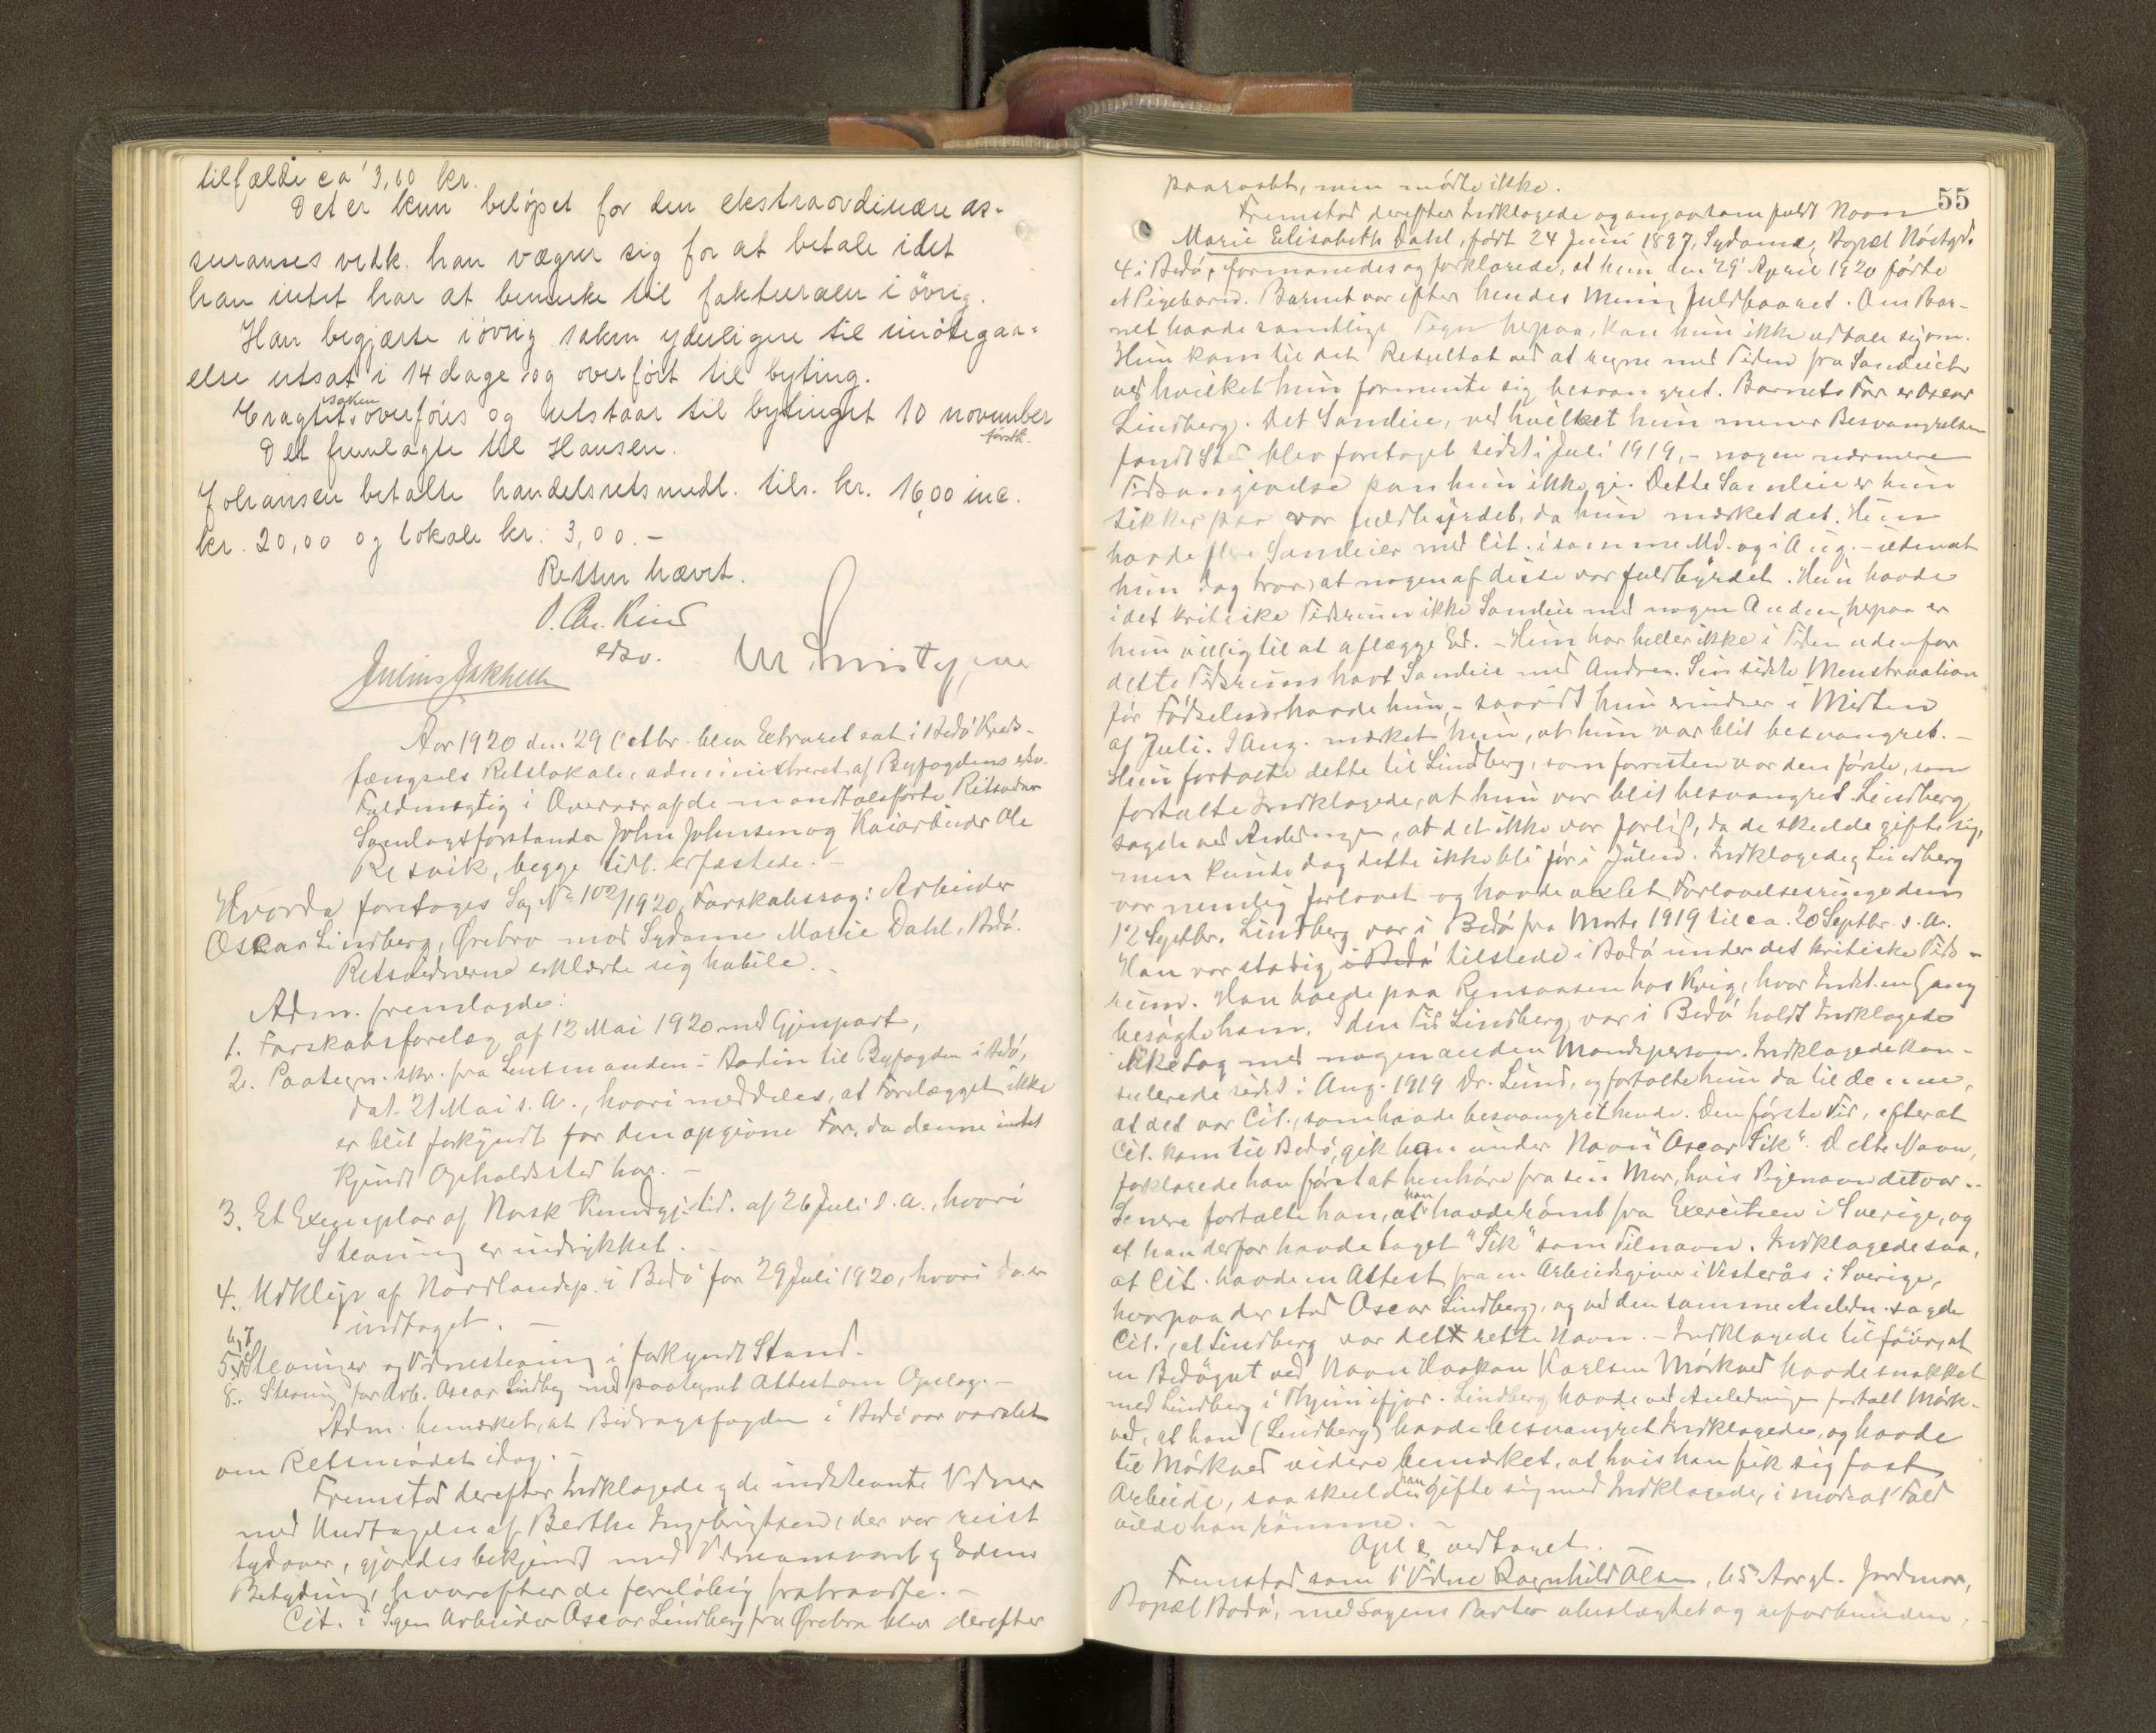 tilfælde ca 3,00 kr.
Det er kun beløpet for den ekstraordinære as-
suranses vedk. han vægrer sig for at betale idet
han intet har at bemerke til fakturaen i øvrig.
Han begjærte iøvrig saken yderligere til imøtegaa-
else utsat i 14 dage og overført til byting.
Eragtet: saken overføres og utstaar til bytinget 10 november
førstk.
Det fremlagte til Hansen.
Johansen betalte handelsretsmedl. tils. kr. 16,00 inc.
kr. 20,00 og lokale kr. 3,00.-
Retten hævet.
O. Chr. Rind
edsv.
Julius Jakhelln
Aar 1920 den 29 Octbr. blev Extraret sat i Bodø Kreds-
fængsels Retslokale, administreret af Byfogdens edsv.
Fuldmægtig i Overvær af de mandtalsførte Retsvidner
Samlagsforstander John Johnsen og Kaiarbeider Ole
Resvik, begge tidl. edfæstede.-
Hvorda foretoges Sag No 102/1920, Farskabssag: Arbeider
Oscar Lindberg, Ørebro mod Sydame Marie Dahl, Bodø.
Retsvidnerne erklærte sig habile.-
Adm. fremlagde:
1. Farskabsforelæg af 12 Mai 1920 med Gjenpart,
2. Paategn. skr. fra Lensmanden i Bodin til Byfogden i Bodø,
dat. 21 Mai s. A., hvori meddeles, at Forelægget ikke
er blit forkyndt for den opgivne Far, da denne intet
kjendt Opholdssted har.-
3. Et Exemplar af Norsk Kundgj. tid. af 26 Juli s. A., hvori
Stevning er indrykket.-
4. Udklip af Nordlandsp. i Bodø for 29 Juli 1920, hvori do. er
indtaget.-
6, 7
5, Stevninger og Vidnestevning i forkyndt Stand.
8. Stevning for Arb. Oscar Lindberg med paategnet Attest om Opslag.-
Adm. bemærket, at Bidragsfogden i Bodø var varslet
om Retsmødet idag.-
Fremstod derefter Indklagede og de indstevnte Vidner
med Undtagelse af Berthe Ingebrigtsen, der var reist
sydover, gjordes bekjendt med Vidneansvaret og Edens
Betydning, hvorefter de foreløbig fratraadte.-
Cit. i Sagen Arbeider Oscar Lindberg fra Ørebro blev derefter
55
paaraabt, men mødte ikke.
Fremstod derefter Indklagede og angav som fuldt Navn
Marie Elisabeth Dahl, født 24 Juni 1897, Sydame, Bopæl Nóstgd.
4 i Bodø, formanedes og forklarede, at hun den 29 April 1920 fødte
et Pigebarn. Barnet var efter hendes Mening fuldbaaret. Om Bar-
net havde samtlige Tegn herpaa, kan hun ikke udtale sig om.
Hun kom til det Resultat ved at regne med Tiden fra Samleiet
ved hvilket hun formente sig besvangret. Barnets Far er Oscar
Lindberg. Det Samleie, ved hvilket hun mener Besvangrelsen
fandt Sted blev foretaget sidst i Juli 1919, - nogen nærmere
Tidsangivelse kan hun ikke gi. Dette Samleie er hun
sikker paa var fuldbyrdet, da hun mærket det. Hun
havde flere Samleier med Cit. i samme Md. og i Aug. - uten at
hun dog tror, at nogen af disse var fuldbyrdet. Hun havde
i det kritiske Tidsrum ikke Samleie med nogen Anden, herpaa er
hun villig til at aflægge Ed. - Hun har heller ikke i Tiden udenfor
dette Tidsrum havt Samleie med Andre. Sin sidste Menstruation
før Fødselen havde hun, - saavidt hun erindrer i Midten
af Juli. I Aug. mærket hun, at hun var blit besvangret.-
Hun fortalte dette til Lindberg, som forresten var den første, som
fortalte Indklagede, at hun var blit besvangret. Lindberg
sagde ved Anledningen, at det ikke var farligt, da de skulde gifte sig,
men kunde dog dette ikke bli før i Julen. Indklagede og Lindberg
var nemlig forlovet og havde vexlet Forlovelsesringe den
12 Septbr. Lindberg var i Bodø fra Marts 1919 til ca. 20 Septbr. s. A.
Han var stadig i Bodø tilstede i Bodø under det kritiske Tids-
rum. Han boede paa Rensaasen hos Krig, hvor Indkl. en Gang
besøgte ham. I den Tid Lindberg var i Bodø holdt Indklagede
ikke Lag med nogen anden Mandsperson. Indklagede kon-
sulerede sidst i Aug. 1919 Dr. Lund, og fortalte hun da til denne,
at det var Cit., som havde besvangret hende. Den første Tid, efter at
Cit. kom til Bodø, gik han under Navn "Oscar Sik". Dette Navn,
forklarede han først at henhøre fra sin Mor, hvis Pigenavn det var.-
Senere fortalte han, at han havde rømt fra Exercitien i Sverige, og
at han derfor havde taget "Sik" som Tilnavn. Indklagede saa,
at Cit. havde en Attest fra en Arbeidsgiver i Vesterås i Sverige,
hvorpaa der stod Oscar Lindberg, og ved den samme Anledn. sagde
Cit., at Lindberg var det rette Navn. - Indklagede tilføier, at
en Bodøgut ved Navn Haakon Karlsen Mørkved havde snakket
med Lindberg i Thjem ifjor. Lindberg havde ved Anledningen fortalt Mørk-
ved, at han (Lindberg) havde besvangret Indklagede, og havde
til Mørkved videre bemærket, at hvis han fik sig fast
Arbeide, saa skulde han gifte sig med Indklagede, i modsat Fald
vilde han rømme.-
Opl. og vedtaget.-
Fremstod som 1 Vidne Ragnhild Olsen, 65 Aar gl. Jordmor,
Bopæl Bodø, med Sagens Parter ubeslægtet og uforbunden.